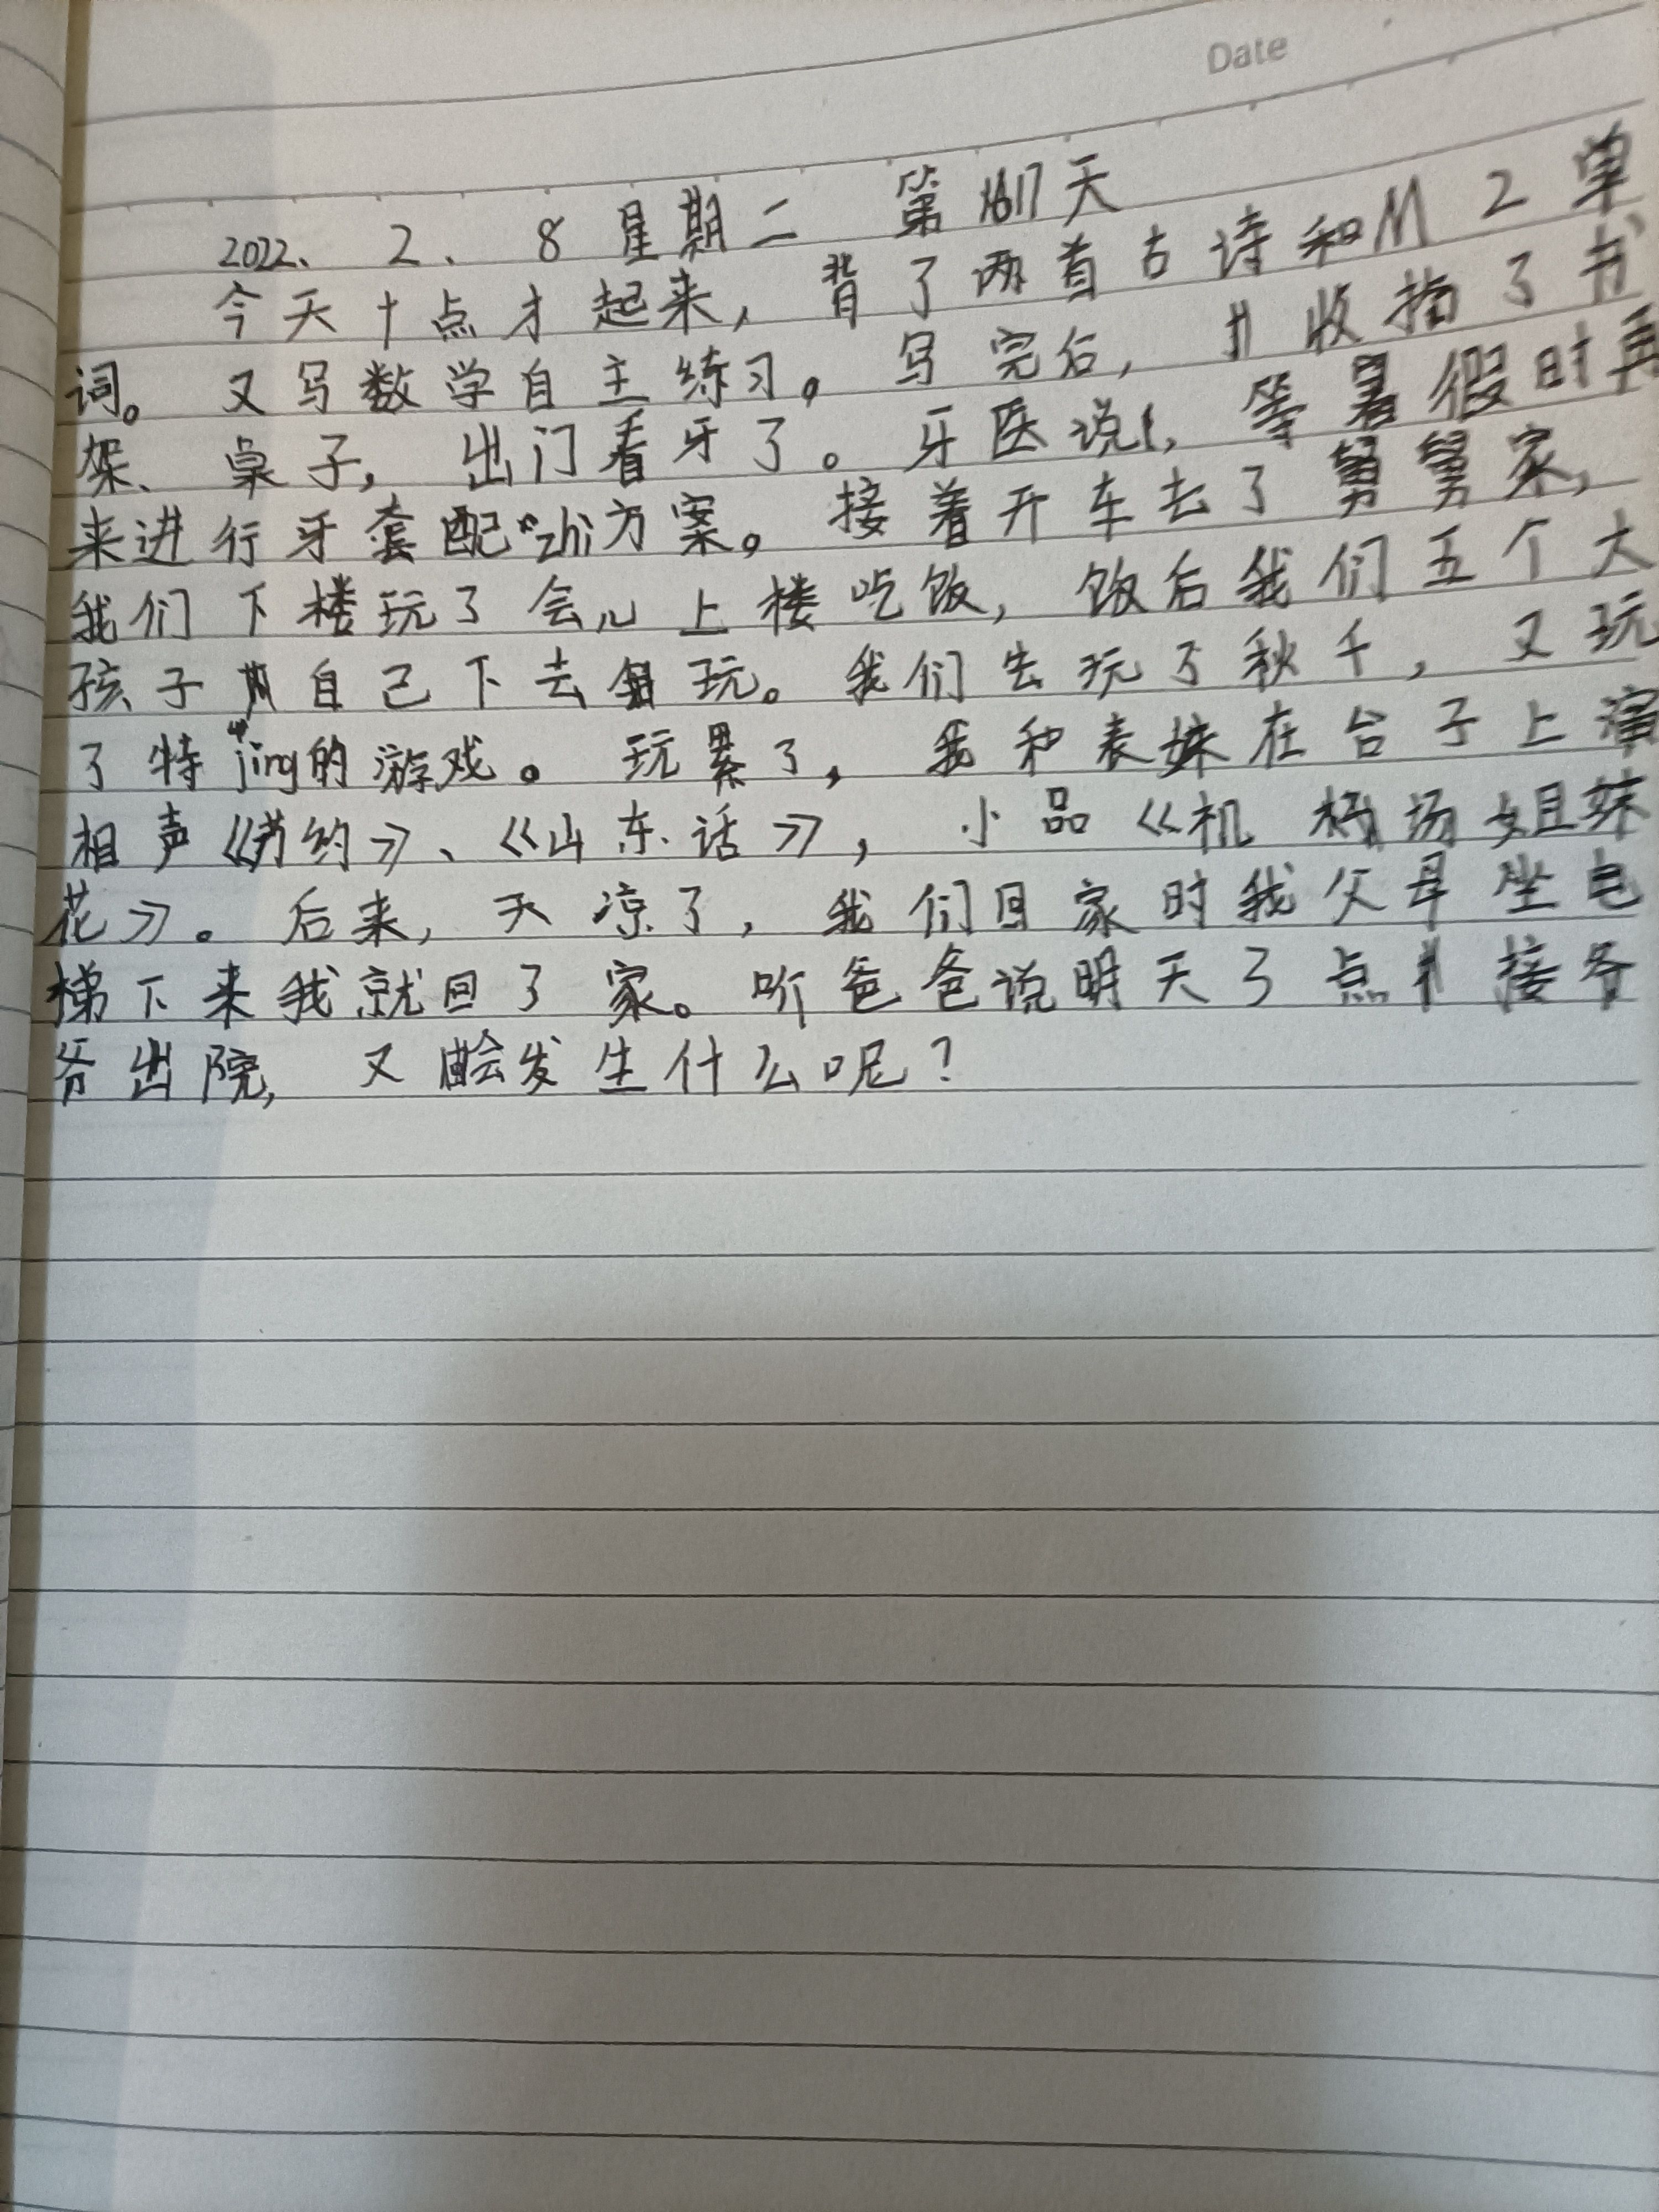 Date
2022、2、8 星期二 第1617天
今天十点才起来，背了两首古诗和M2单
词。又写数学自主练习。写完后，收拾了书
架、桌子，出门看牙了。牙医说，等暑假时再
来进行牙套配zhi方案。接着开车去了舅舅家，
我们下楼玩了会儿上楼吃饭，饭后我们五个大
孩子自己下去玩。我们去玩了秋千，又玩
了特jing的游戏。玩累了，我和表妹在台子上演
相声《节约》、《山东话》，小品《机场姐妹
花》。后来，天凉了，我们回家时我父母坐电
梯下来我就回了家。听爸爸说明天了点接爷
爷出院，又会发生什么呢？